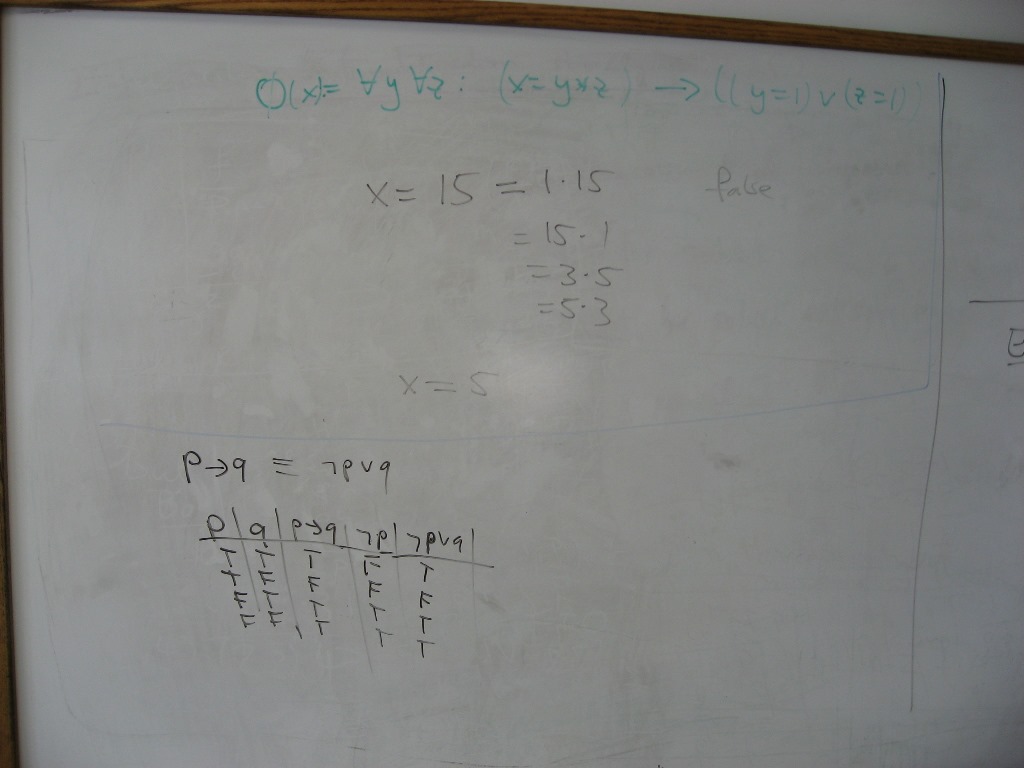 Φ(x):= ∀y ∀z: (x=y×z) → ((y=1)∨(z=1))
x = 15 = 1·15 false
= 15·1
= 3·5
= 5·3
x = 5
p→q ≡ ¬p∨q
p q p→q ¬p ¬p∨q
T T T F T
T F F F F
F T T T T
F F T T T